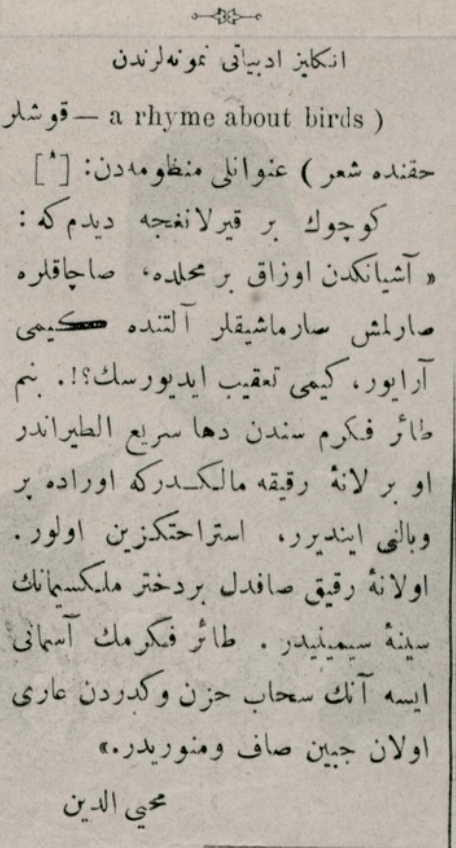 انكليز ادبياتى نمونه‌لرندن
( a rhyme about birds — قوشلر
حقنده شعر ) عنوانلى منظومه‌دن: [*]
كوچوك بر قيرلانغجه ديدم‌كه :
« آشيانكدن اوزاق بر محلده، صاچاقلره
صارلمش صارماشيقلر آلتنده كيمى
آرايور، كيمى تعقيب ايديورسك؟!. بنم
طائر فكرم سندن دها سريع الطيراندر
او بر لانهٔ رقيقه مالكدركه اوراده پر
وبالنى اينديرر، استراحتكزين اولور.
اولانهٔ رقيق صافدل بردختر ملكسيمانك
سينهٔ سيمينيدر . طائر فكرمك آسمانى
ايسه آنك سحاب حزن وكدردن عارى
اولان جبين صاف ومنوريدر.»
محيى الدين